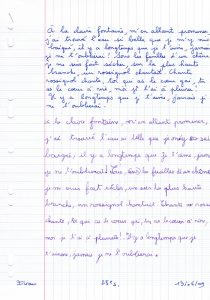 A la claire fontaine, m'en allant promener,
j'ai trouvé l'eau si belle que je m'y suis
baigné, il y a longtemps que je t'aime, jamais
je ne t'oublierai. Sous les feuilles d'un chêne
je me suis fait sécher, sur la plus haute
branche, un rossignol chantait. Chante
rossignol chante, toi qui as le cœur gai, tu
as le cœur à rire, moi je l'ai à pleurer!
Il y a longtemps que je t'aime, jamais je
ne t'oublierai.
A la claire fontaine, m'en allant promener,
j'ai trouvé l'eau si belle que je m'y suis
baigné, il y a longtemps que je t'aime, jamais
je ne t'oublierai! Sous les feuilles d'un chêne
je me suis fait sécher, sur la plus haute
branche, un rossignol chantait. Chante ros
chante, toi qui as le cœur gai, tu as le cœur à rire,
moi je l'ai à pleurer! Il y a longtemps que je
t'aime, jamais je ne t'oublierai.